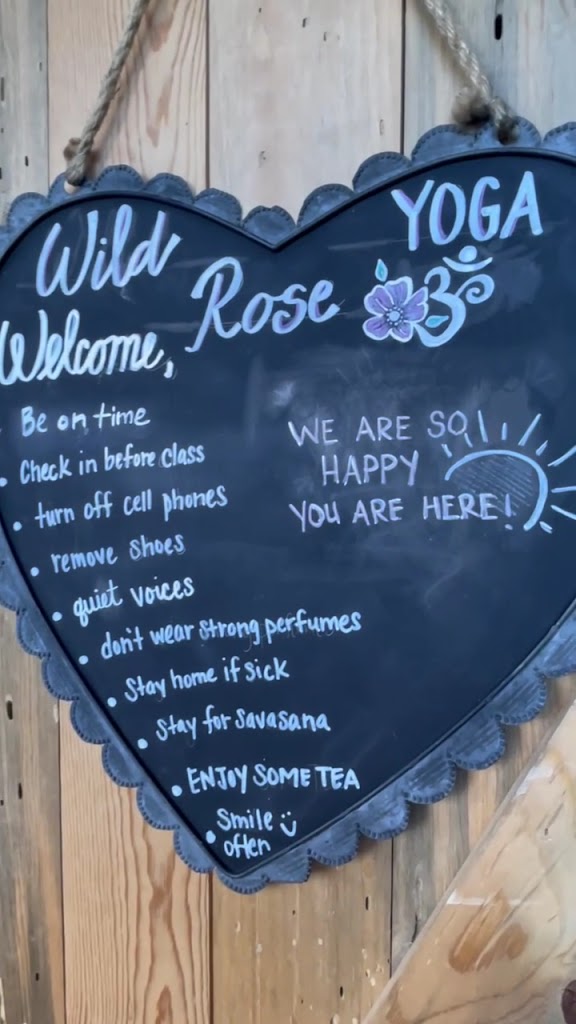 Wild Rose YOGA ॐ
Welcome,
Be on time
• Check in before class
• turn off cell phones
• remove shoes
• quiet voices
• don't wear strong perfumes
• Stay home if sick
• Stay for savasana
• ENJOY SOME TEA
• Smile
often
WE ARE SO
HAPPY
YOU ARE HERE!